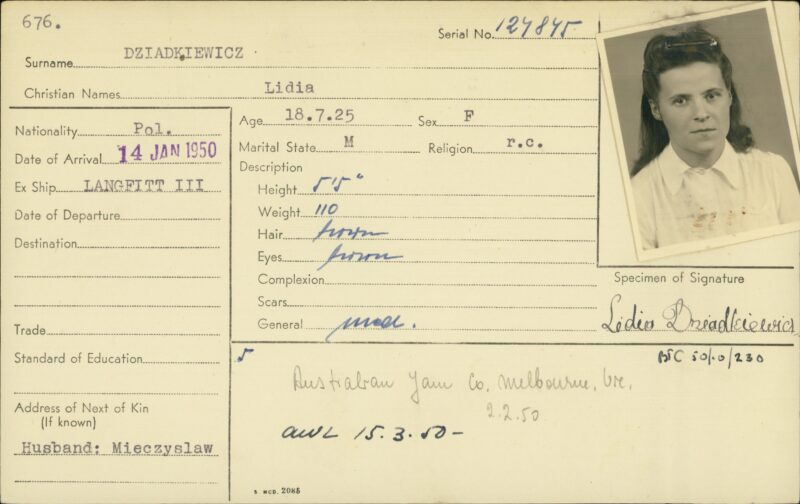 676.
Serial No. 127845
Surname DZIADKIEWICZ
Christian Names Lidia
Nationality Pol.
Date of Arrival 14 JAN 1950
Ex Ship LANGFITT III
Date of Departure
Destination
Trade
Standard of Education
Address of Next of Kin
(If known)
Husband: Mieczyslaw
Age 18.7.25 Sex F
Marital State M Religion r.c.
Description
Height 5'5"
Weight 110
Hair brown
Eyes brown
Complexion
Scars
General med.
Specimen of Signature
Lidia Dziadkiewicz
5
Australian Jam Co, Melbourne, Vic.
2.2.50
AWL 15.3.50-
S MCD. 2085